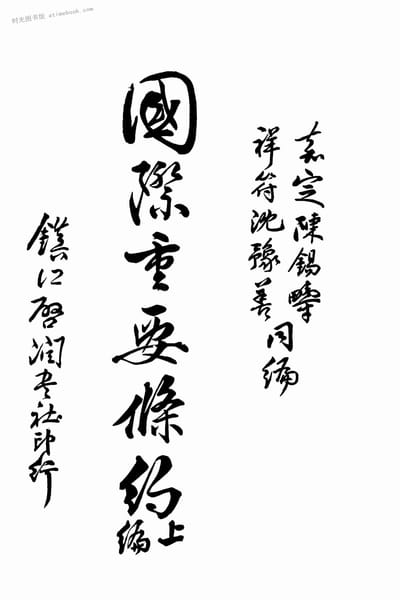 时光图书馆 · atimebook.com
嘉定陳錫疇
祥符沈豫善同編
國際重要條約上編
鎮江啓润書社印行